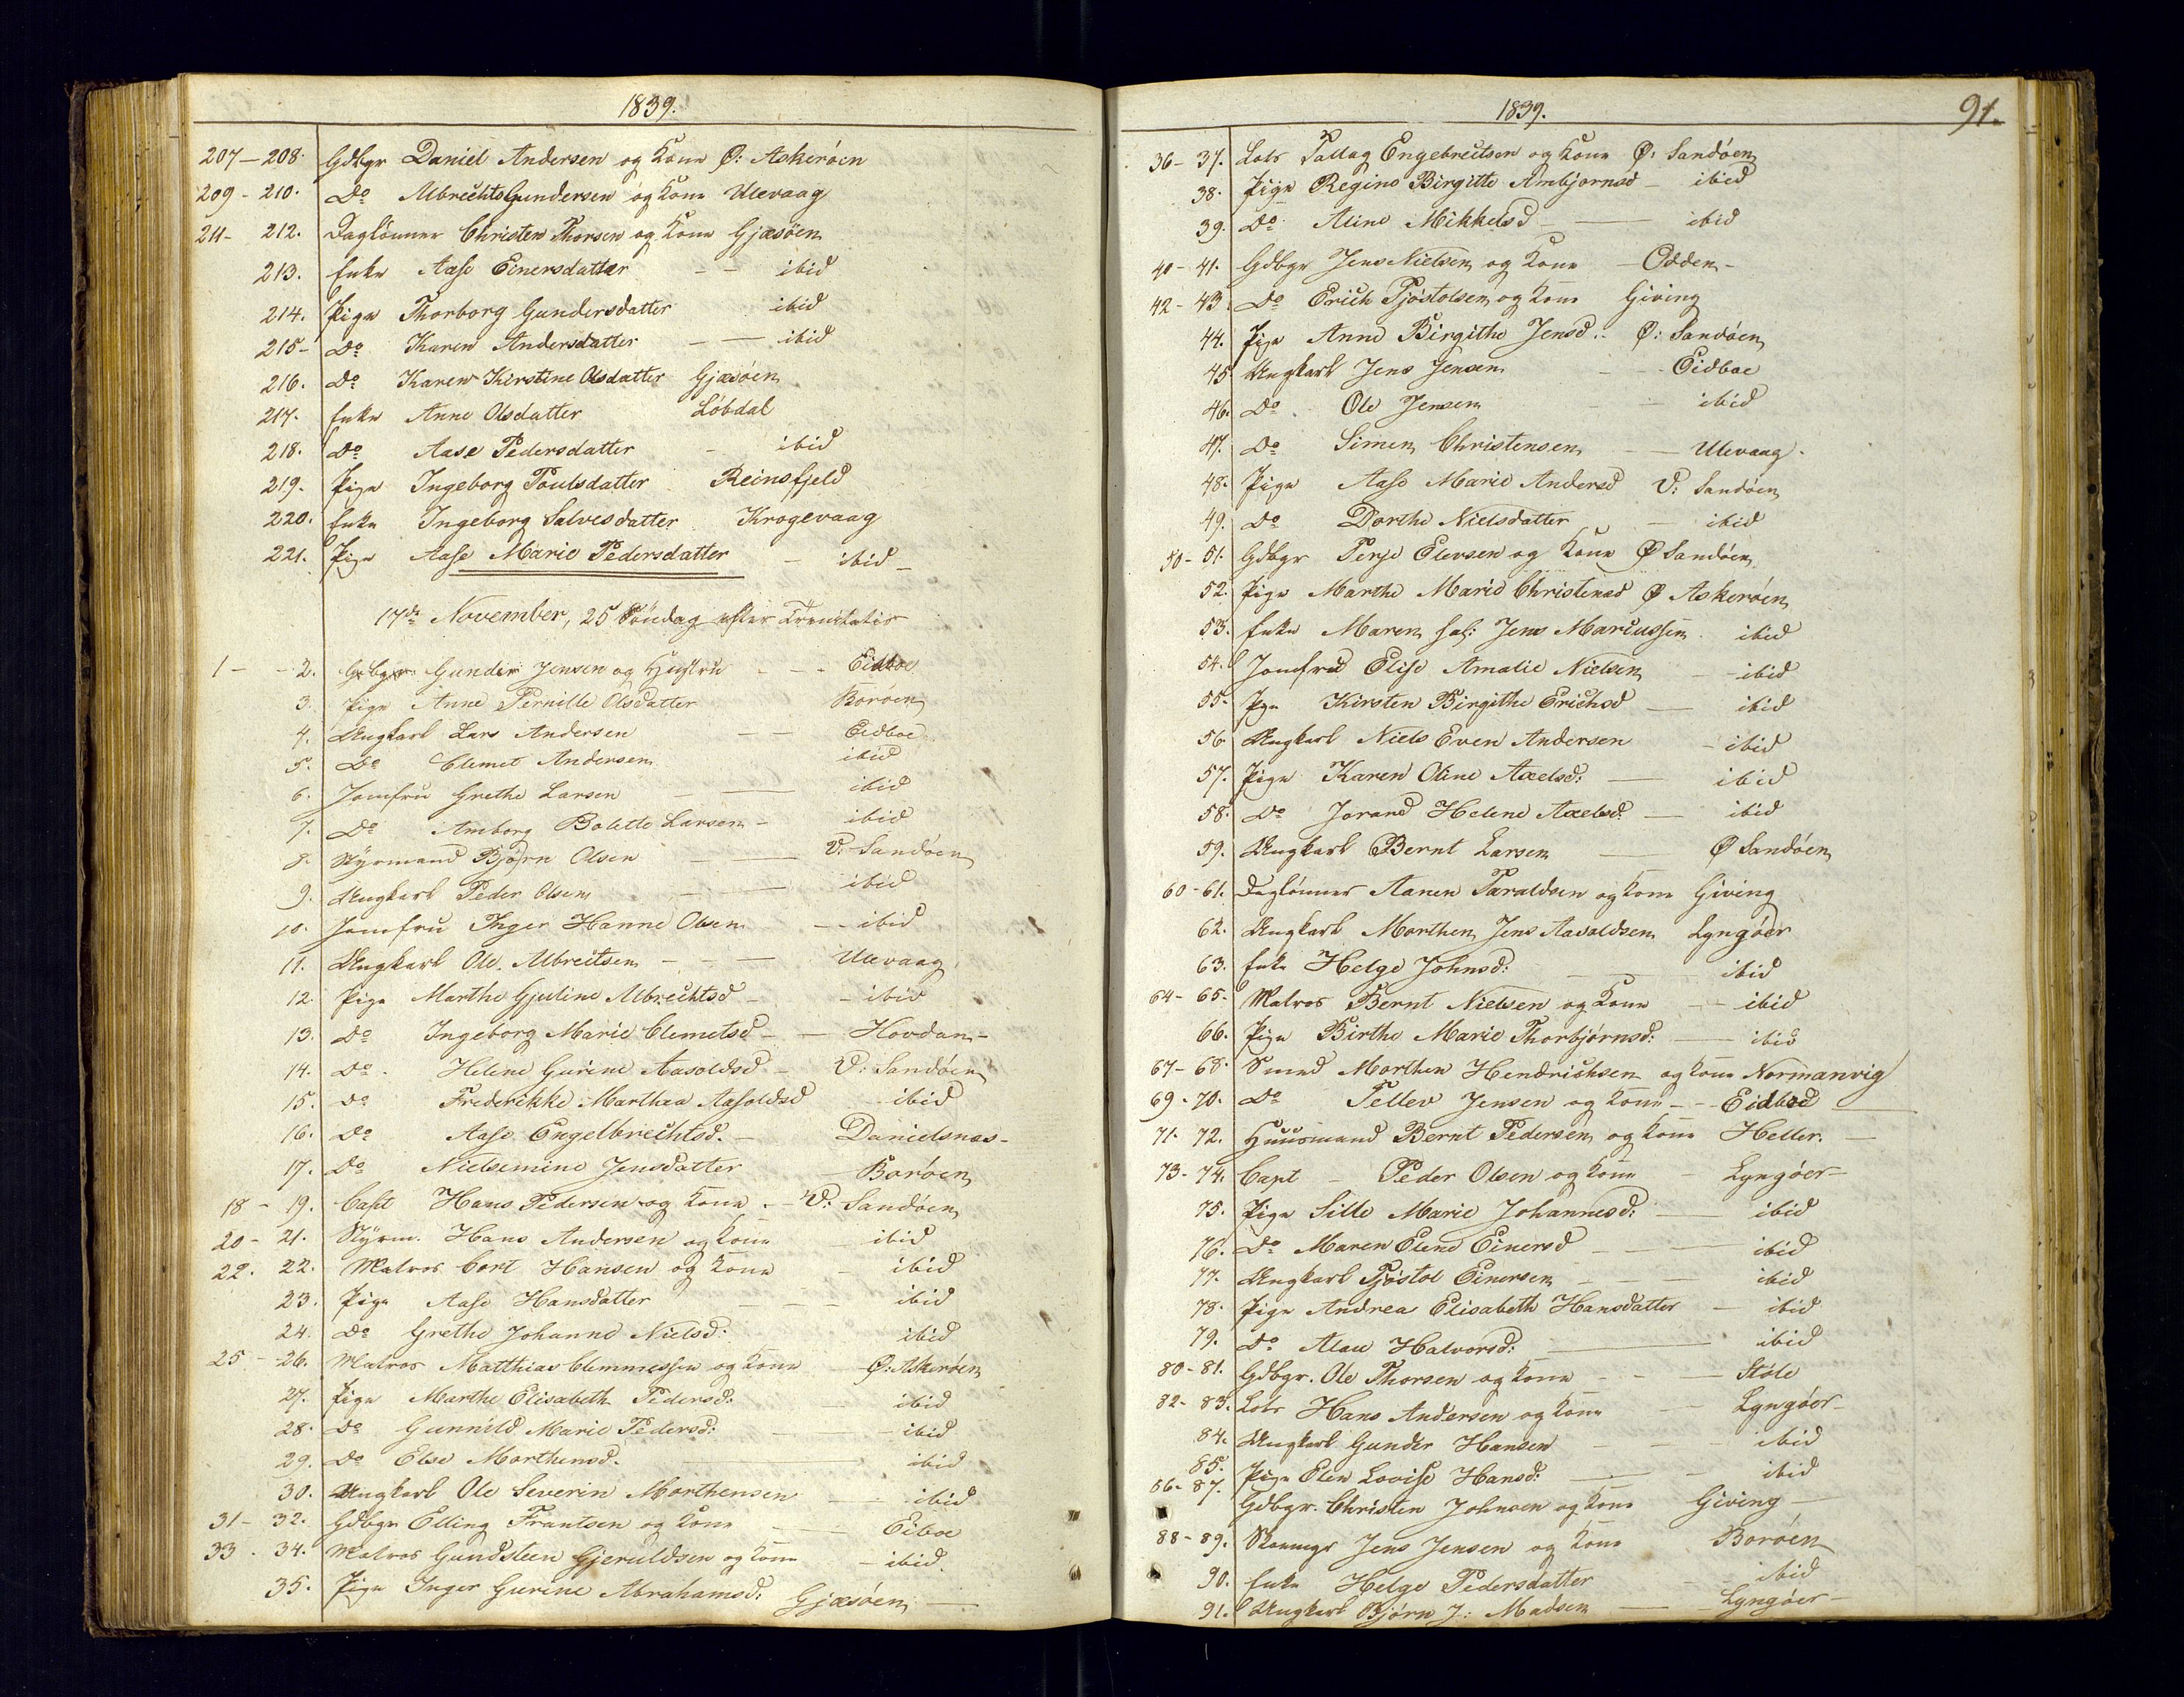 1839.
207-208. Gdbgr Daniel Andersen og Kone Ø: Askerøen
209-210. Do Albrecht Gundersen og Kone Ulevaag
211-212. Daglönner Christen Thorsen og Kone Gjæsøen
213. Enke Aase Einersdatter - - ibid
214. Pige Thorborg Gundersdatter ibid
215- Do Karen Andersdatter - - ibid
216. Do Karen Kirstine Olsdatter Gjæsøen
217. Enke Anne Olsdatter Löbdal
218. Do Aase Pedersdatter - ibid
219. Pige Ingeborg Poulsdatter Reinsfjeld
220. Enke Ingeborg Salvesdatter Krogevaag
221. Pige Aase Marie Pedersdatter - ibid -
17de November, 25 Söndag efter Trenitatis
1 - - 2. Gdbgr. Gunder Jensen og Hustru - - Eidboe
3. Pige Anne Pernille Olsdatter Borøen
4. Ungkarl Lars Andersen - - Eidboe
5. Do Clemet Andersen ibid
6. Jomfru Grethe Larsen - - ibid
7. Do Amborg Bolette Larsen - ibid
8. Styrmand Bjørn Olsen - V: Sandøen
9. Ungkarl Peder Olsen - - ibid
10. Jomfru Inger Hanne Olsen - - ibid
11. Ungkarl Ole Albreitsen - - - Ulevaag
12. Pige Marthe Gjuline Albrechtsd - - ibid
13. Do Ingeborg Marie Clemetsd - - Hovdan -
14. Do. Helene Gurine Aasoldsd - V: Sandøen
15. Do Frederikke Marthea Aasoldsd - ibid
16. Do Aase Engelbrechtsd. - Danielsnæs -
17. Do Nielsemine Jensdatter - Borøen
18 - 19. Capt Hans Pedersen og Kone - - V: Sandøen
20 - 21. Styrm. Hans Andersen og Kone ibid
22. 22. Matros Cort Hansen og Kone - ibid
23. Pige Aase Hansdatter - - - ibid
24. Do Grethe Johanne Nielsd: ibid
25 - 26. Matros Matthias Clemmessen og Kone - Ø: Askerøen
27. Pige Marthe Elisabeth Pedersd: - ibid
28. Do Gunnild Marie Pedersd: - - ibid
29. Do Else Morthensd. - ibid
30. Ungkarl Ole Severin Morthensen - - ibid
31 - 32. Gdbgr Elling Frantsen og Kone - - Eiboe
33. 34. Matros Gundsteen Gjeruldsen og Kone - ibid.
35. Pige Inger Gurine Abrahamsd: Gjæsøen -
1839.
91.
36-37. Lods Tallag Engebreitsen og Kone Ø: Sandøen
38. Pige Regine Birgitte Ambjørnsd - ibid
39. Do. Aline Mikkelsd - ibid
40-41. Gdbgr Jens Nielsen og Kone - Odden -
42-43. Do Erich Tjøstolsen og Kone Giving
44. Pige Anne Birgithe Jensd.. Ø: Sandøen
45 Ungkarl Jens Jensen - - Eidboe
46. Do. Ole Jensen - - ibid
47. Do Simen Christensen - - Ulevaag.
48. Pige Aase Marie Andersd V: Sandøen
49. Do Dorthe Nielsdatter - ibid
50-51. Gdbgr Terje Elevsen og Kone Ø Sandøen
52. Pige Marthe Marie Christensd Ø Askerøen
53. Enke Maren sal: Jens Marcussen ibid
54. Jomfrue Elise Amalie Nielsen - ibid
55. Pge Kirsten Birgithe Erichsd - ibid
56 Ungkarl Niels Even Andersen - ibid
57. Pige Karen Oline Axelsd: - ibid
58. Do Jorand Helene Axelsd. - ibid
59. Ungkarl Bernt Larsen - Ø Sandøen
60-61. Daglønner Aanen Taraldsen og Kone Giving
62. Ungkarl Morthen Jens Aasoldsen Lyngöer
63. Enke Helge Johnsd: ibid
64-65. Matros Bernt Nielsen og Kone - - ibid
66. Pige Birthe Marie Thorbjørnsd: - ibid
67-68. Smed Morthen Hendrichsen og Kone Normanvig
69-70. Do Tellev Jensen og Kone - - Eidboe -
71-72. Huusmand Bernt Pedersen og Kone Heller. -
73-74. Capt - Peder Olsen og Kone - Lyngöer -
75. Pige Sille Marie Johannesd: - ibid
76. Do Maren Elene Einersd - - ibid
77. Ungkarl Tjöstol Einersen - - - ibid
78. Pige Andrea Elisabeth Hansdatter - ibid
79. Do Alau Halvorsd: - ibid
80-81. Gdbgr. Ole Thorsen og Kone - - - Støle
82-83. Lods Hans Andersen og Kone - Lyngöer -
84. Ungkarl Gunder Hansen - - - ibid
85. Pige Elen Lovise Hansd: - - ibid
86-87. Gdbgr. Christen Johnsen og Kone Giving -
88-89. Jens Jensen og Kone Borøen
90. Enke Helge Pedersdatter - ibid
91. Ungkarl Bjørn J: Madsen - Lyngöer -